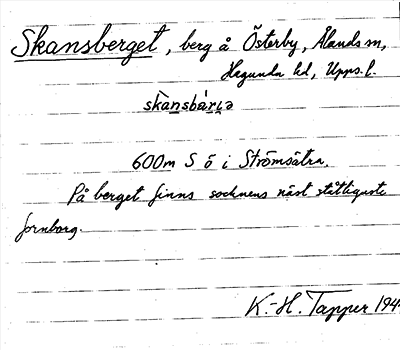 Skansberget, berg å Österby, Ålands sn,
Hagunda hd, Upps. l.
skánsbàrɩ̣ə
600 m S ö i Strömsätra.
På berget finns socknens näst ståtligaste
fornborg.
K.-H. Tapper 194